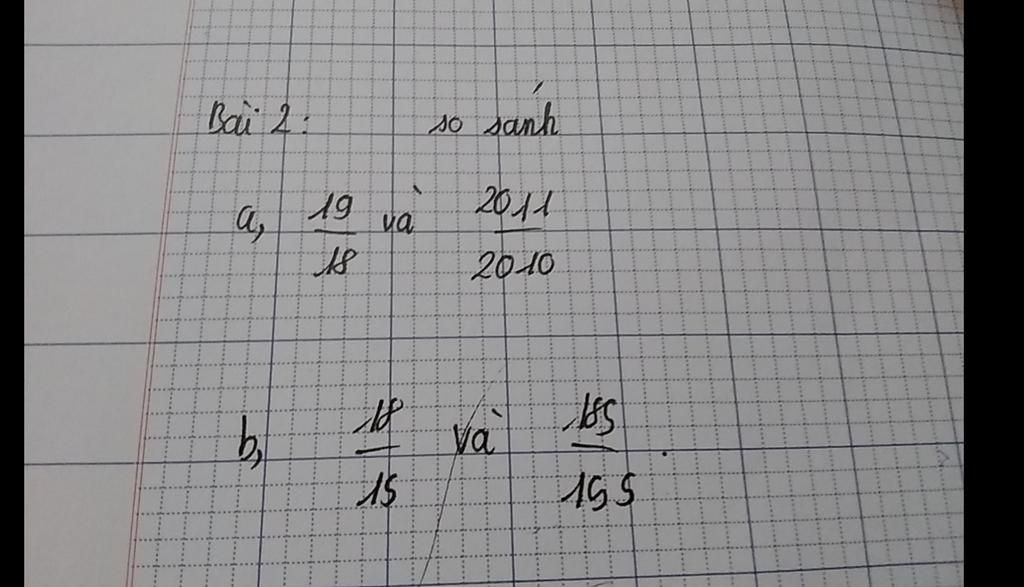 Bài 2: so sánh
a, 19/18 và 2011/2010
b, 18/15 và 185/155.